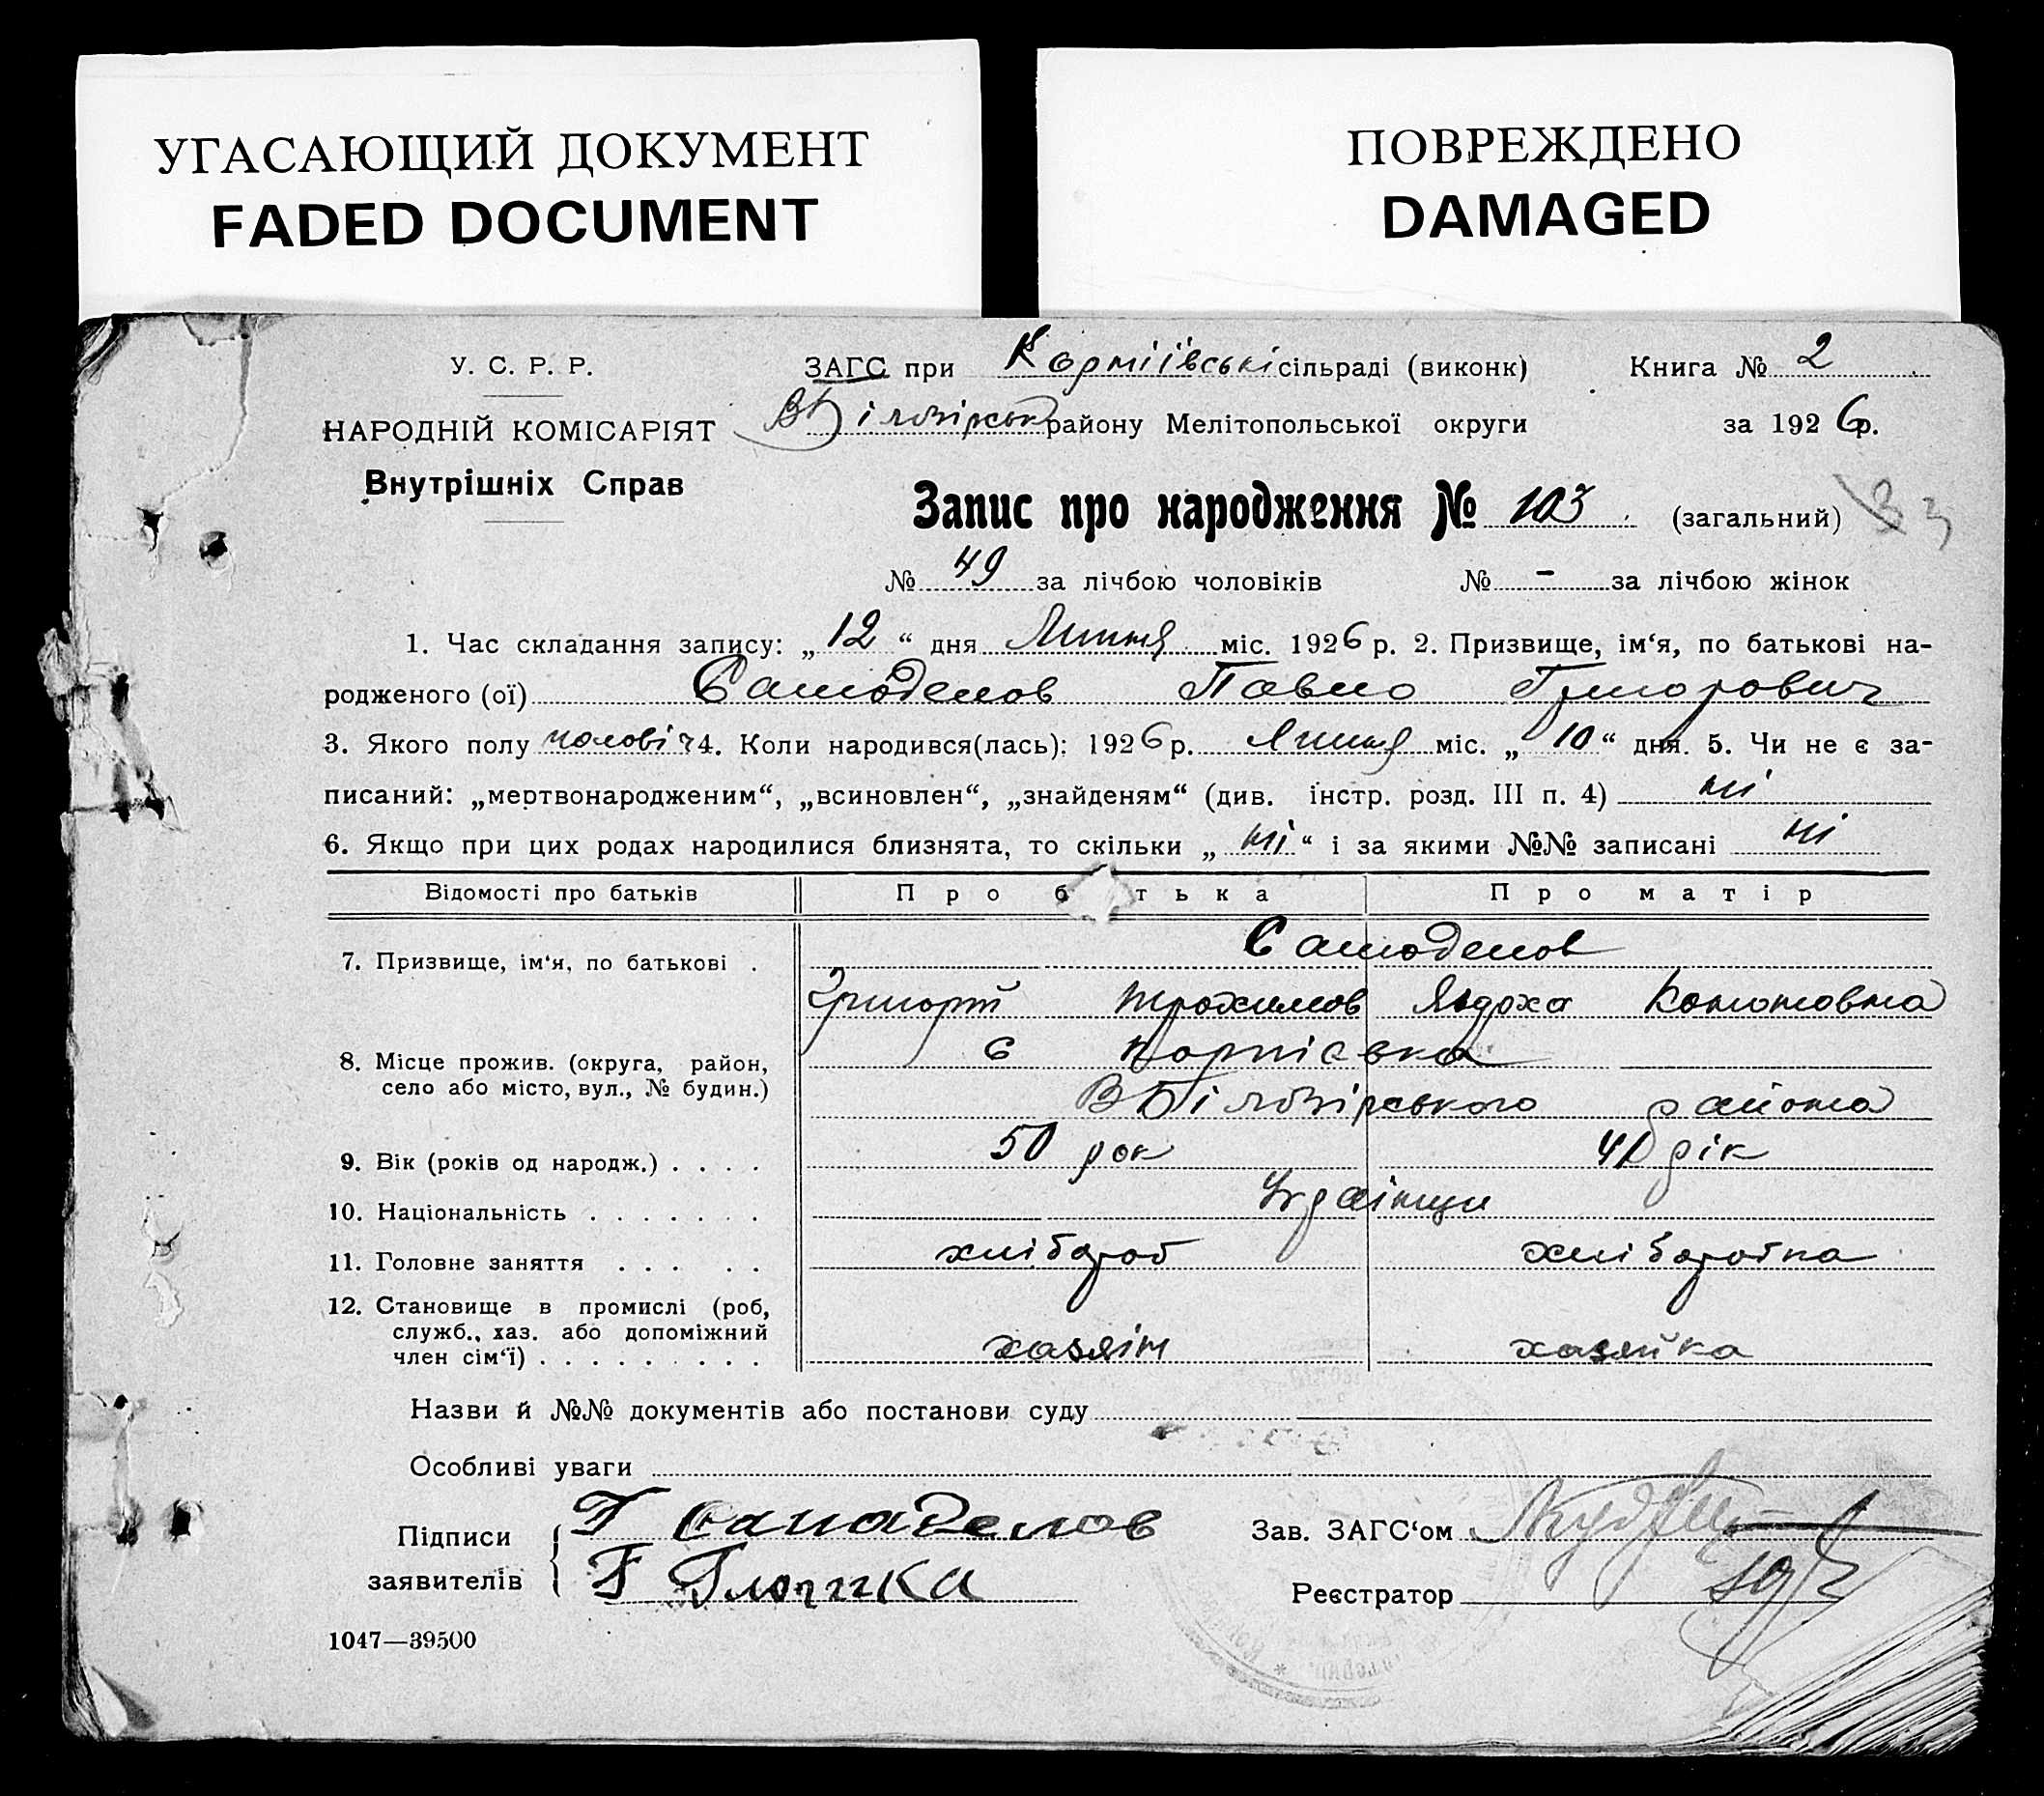 УГАСАЮЩИЙ ДОКУМЕНТ
FADED DOCUMENT
ПОВРЕЖДЕНО
DAMAGED
У. С. Р. Р.
НАРОДНІЙ КОМІСАРІЯТ
Внутрішніх Справ
ЗАГС при Корніївські сільраді (виконк) Книга № 2
ВБілозірськ району Мелітопольської округи за 1926 р.
Запис про народження № 103 (загальний) 33
№ 49 за лічбою чоловіків № - за лічбою жінок
1. Час складання запису: „ 12 “ дня Липня міс. 1926 р. 2. Призвище, ім‘я, по батькові на-
родженого (ої) Самоделов Павло Григорович
3. Якого полу чоловіч 4. Коли народився(лась): 1926 р. Липня міс. „ 10 “ дня. 5. Чи не є за-
писаний: „мертвонародженим“, „всиновлен“, „знайденям“ (див. інстр. розд. III п. 4) ні
6. Якщо при цих родах народилися близнята, то скільки „ ні “ і за якими №№ записані ні
Відомості про батьків Про б тька Про матір
7. Призвище, ім‘я, по батькові . Самоделов
Григорій Трохимов Явдоха
8. Місце прожив. (округа, район, с Корніевка
село або місто, вул., № будин.) ВБілозірського района
9. Вік (років од народж.) . . . . 50 рок 41 рік
10. Національність . . . . . . . Українци
11. Головне заняття . . . . . хлібороб хліборобка
12. Становище в промислі (роб,
служб., хаз. або допоміжний
член сім‘ї) . . . . . . . . . хазяїн хазяйка
Назви й №№ документів або постанови суду
Особливі уваги
Підписи
заявителів
Г Самаделов
Г Глючка
Зав. ЗАГС‘ом
Реєстратор
1047—39500